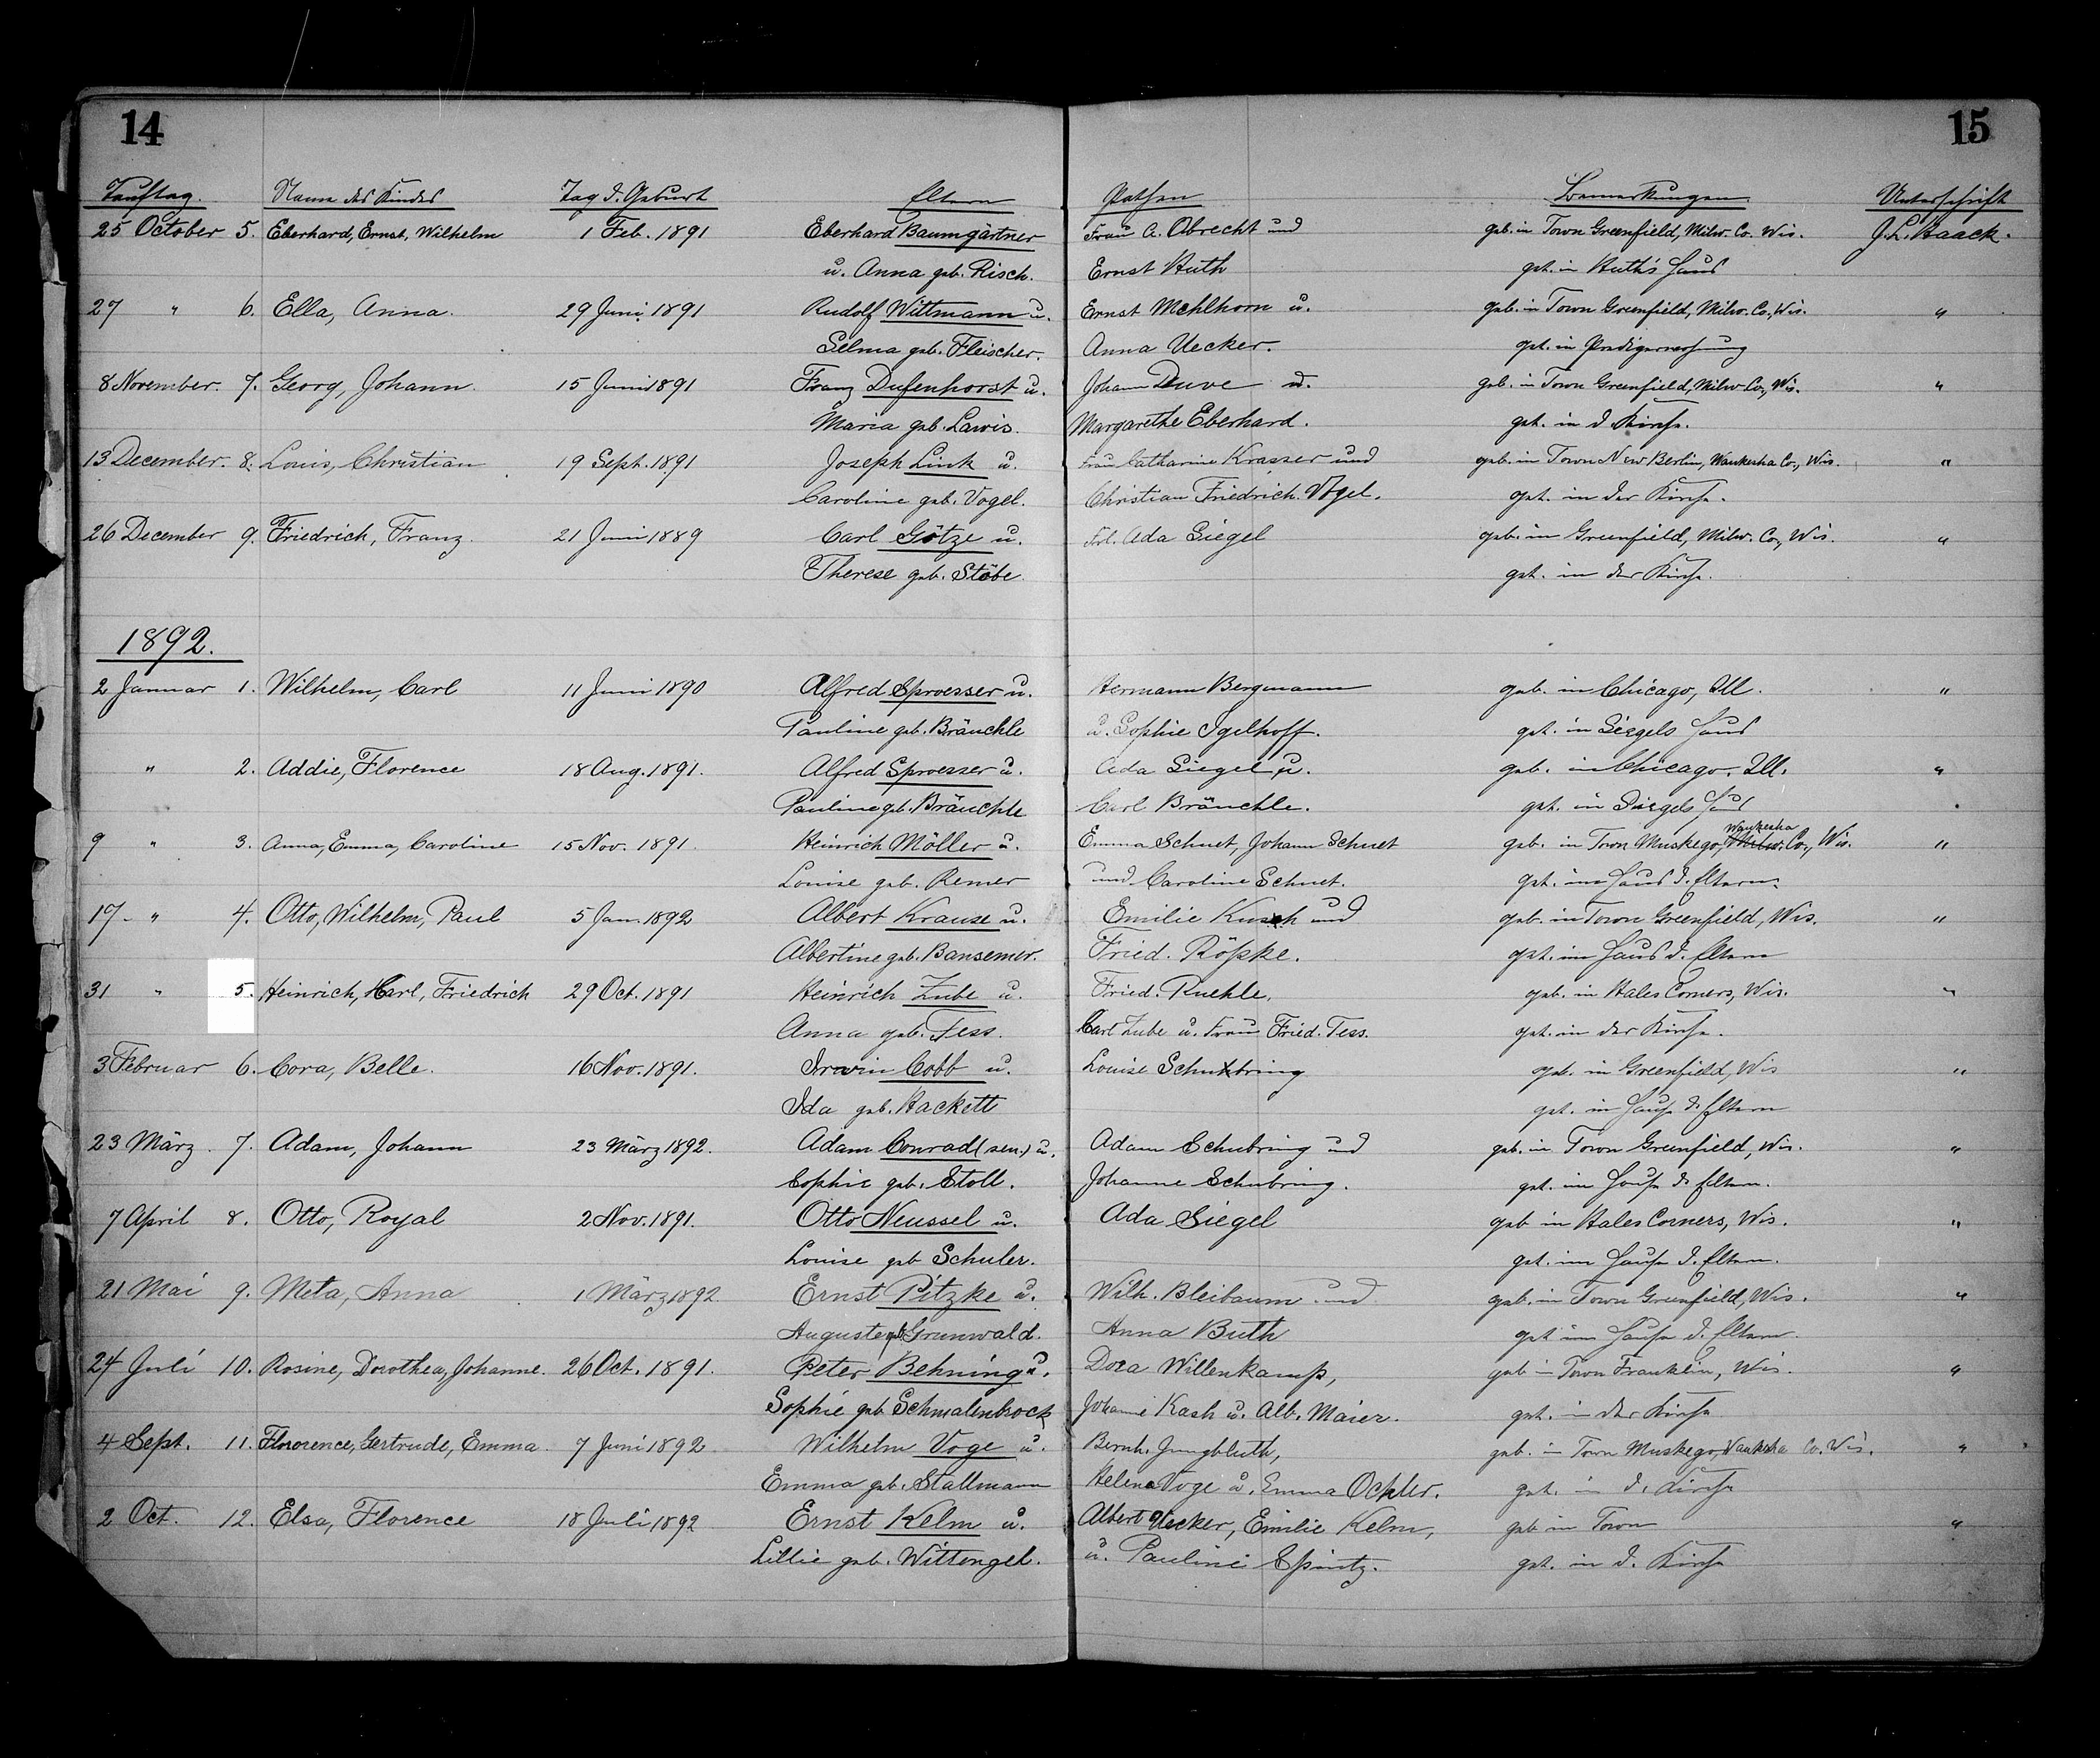 14
15
Tauftag. Name des Kindes Tag d. Geburt Eltern Pathen Bemerkungen Unterschrift
25 October 5. Eberhard, Ernst, Wilhelm 1 Feb. 1891 Eberhard Baumgärtner Frau A. Obrecht und geb. in Town Greenfield, Milw. Co. Wis. J. L. Haack.
u. Anna geb. Risch. Ernst Huth get. in Huth's Haus
27 " 6. Ella, Anna. 29 Juni 1891 Rudolf Wittmann u. Ernst Mehlhorn u. geb. in Town Greenfield, Milw. Co., Wis. "
Selma geb. Fleischer. Anna Uecker. get. in Predigerwohnung
8 November. 7. Georg, Johann. 15 Juni 1891 Franz Dufenhorst u. Johann Duve u. geb. in Town Greenfield, Milw Co., Wis. "
Maria geb. Lawis. Margarethe Eberhard. get. in d. Kirche.
13 December. 8. Louis, Christian 19 Sept. 1891 Joseph Link u. Frau Catharine Krasser und geb. in Town New Berlin, Waukesha Co., Wis. "
Caroline geb. Vogel. Christian Friedrich Vogel. get. in der Kirche.
26 December 9. Friedrich, Franz. 21 Juni 1889 Carl Götze u. Frl. Ada Siegel geb. in Greenfield, Milw. Co., Wis. "
Therese geb. Stöbe. get. in der Kirche.
1892.
2 Januar 1. Wilhelm, Carl 11 Juni 1890 Alfred Sproesser u. Hermann Bergmann geb. in Chicago, Ill. "
Pauline geb. Bräuchle u. Sophie Igelhoff. get. in Siegels Haus
" 2. Addie, Florence 18 Aug. 1891. Alfred Sproesser u. Ada Siegel u. geb. in Chicago, Ill. "
Pauline geb. Bräuchle Carl Bräuchle. get. in Siegels Haus
9 " 3. Anna, Emma, Caroline 15 Nov. 1891. Heinrich Möller u. Emma Schuet, Johann Schuet geb. in Town Muskego, Waukesha Milw. Co., Wis. "
Louise geb. Remer und Caroline Schuet. get. im Haus d. Eltern.
17 " 4. Otto, Wilhelm, Paul 5 Jan. 1892 Albert Krause u. Emilie Kusch und geb. in Town Greenfield, Wis. "
Albertine geb. Bansemer. Fried. Röpke. get. im Haus d. Eltern
31 " 5. Heinrich, Karl, Friedrich 29 Oct. 1891 Heinrich Zube u. Fried. Ruehle, geb. in Hales Corners, Wis. "
Anna geb. Tess. Carl Zube u. Frau Fried. Tess. get. in der Kirche.
3 Februar 6. Cora, Belle. 16 Nov. 1891. Irwin Cobb u. Louise Schubring geb. in Greenfield, Wis "
Ida geb. Hackett get. im Hause d. Eltern
23 März. 7. Adam, Johann 23 März 1892. Adam Conrad (sen.) u. Adam Schubring und geb. in Town Greenfield, Wis. "
Sophie geb. Stoll. Johanne Schubring. get. im Hause d. Eltern.
7 April 8. Otto, Royal 2 Nov. 1891. Otto Neussel u. Ada Siegel geb in Hales Corners, Wis. "
Louise geb Schuler. get. im Hause d. Eltern.
21 Mai 9. Meta, Anna 1 März 1892. Ernst Pitzke u. Wilh. Bleibaum und geb. in Town Greenfield, Wis. "
Auguste geb. Grunwald. Anna Buth get im Hause d. Eltern.
24 Juli 10. Rosine, Dorothea, Johanne. 26 Oct. 1891. Peter Behning u. Dora Willenkamp, geb in Town Franklin, Wis. "
Sophie geb Schmalenbrock Johanne Kash u. Alb. Maier. get. in der Kirche
4 Sept. 11. Florence, Gertrude, Emma. 7 Juni 1892. Wilhelm Voge u. Bernh. Jungbluth, geb. in Town Muskego, Waukesha Co. Wis. "
Emma geb. Stallmann Helene Voge u. Emma get. in d. Kirche
2 Oct. 12. Elsa, Florence 18 Juli 1892 Ernst Kelm u. Albert Uecker, Emilie Kelm, geb in Town "
Lillie geb. Wittengel. u. Pauline get. in d. Kirche